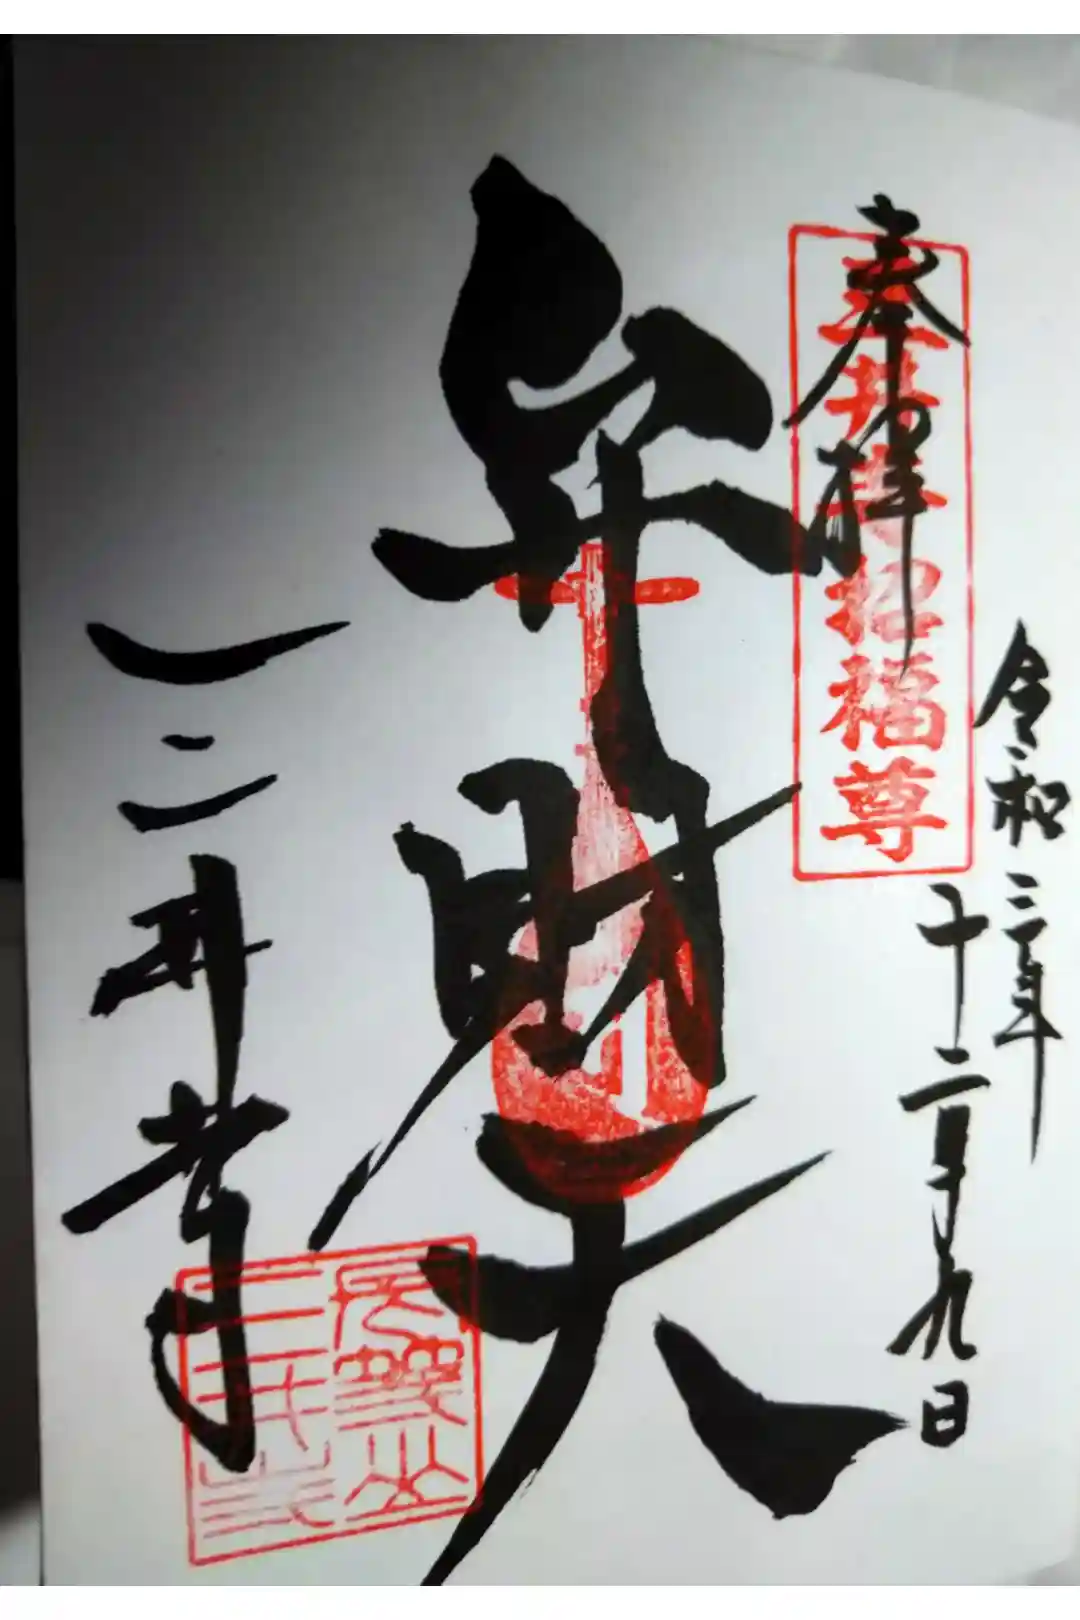 奉拝
三井寺招福尊
令和三年
十二月九日
弁財天
三井寺
長等山
三井寺